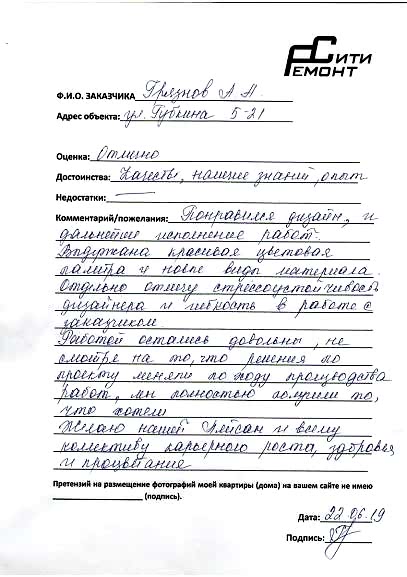 СИТИ
РЕМОНТ
Ф.И.О. ЗАКАЗЧИКА Грязнов А А.
Адрес объекта: ул. Губкина 5-21
Оценка: Отлично
Достоинства: Качество, наличие знаний, опыт
Недостатки:
Комментарий/пожелания: Понравился дизайн, и
дальнейшее исполнение работ.
Выдержана красивая цветовая
палитра и новые виды материала.
Отдельно отмечу стрессоустойчивость
дизайнера и гибкость в работе с
заказчиком
Работой остались довольны, не
смотря на то, что решения по
проекту меняли по ходу производства
работ, мы полностью получили то,
что хотели
Желаю нашей Лейсан и всему
коллективу карьерного роста, здоровья
и процветание
Претензий на размещение фотографий моей квартиры (дома) на вашем сайте не имею
(подпись).
Дата: 22.06.19
Подпись: